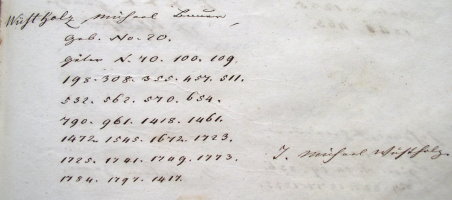 Wustholz, Michael Bauer,
Geb. No. 20.
Güter N. 40. 100. 109.
198. 308. 355. 457. 511.
532. 562. 570. 654.
790. 961. 1418. 1461.
1472. 1545. 1672. 1723.
1725. 1741. 1749. 1773.
1784. 1797. 1417.
T. Michael Wustholz.